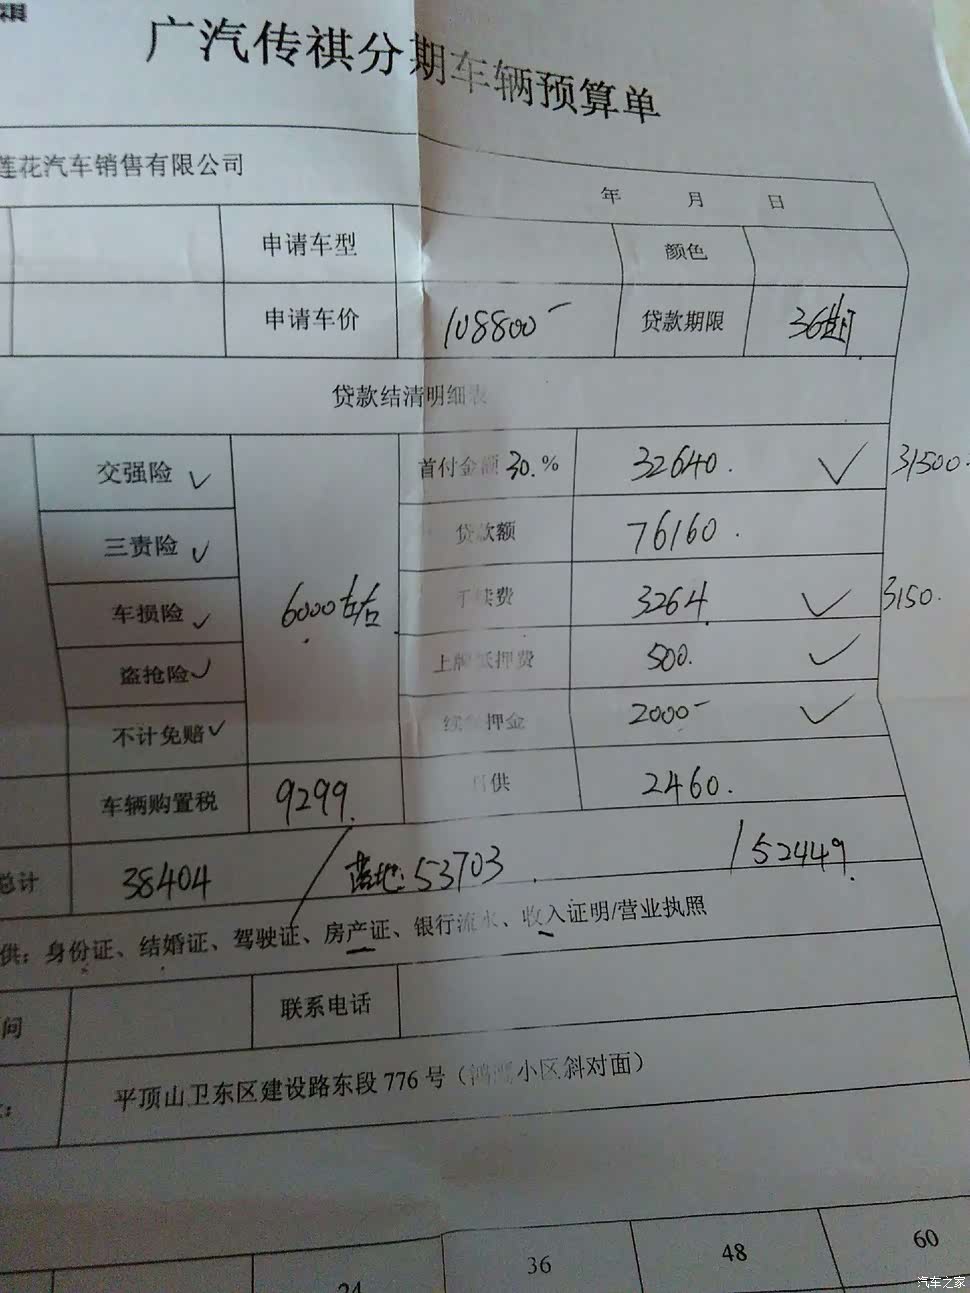 祺
广汽传祺分期车辆预算单
莲花汽车销售有限公司
年 月 日
申请车型 颜色
申请车价 108800 贷款期限 36期
贷款结清明细表
交强险 ✓ 首付金额 30.% 32640. ✓ 31500.
三责险 ✓ 贷款额 76160.
车损险 ✓ 6000左右. 手续费 3264. ✓ 3150.
盗抢险 ✓ 上牌抵押费 500. ✓
不计免赔 ✓ 押金 2000- ✓
车辆购置税 9299. 月供 2460.
总计 38404 落地: 53703. / 52449.
供：身份证、结婚证、驾驶证、房产证、银行流水、收入证明/营业执照
问 联系电话
平顶山卫东区建设路东段 776 号（鸿鹰小区斜对面）
24 36 48 60
汽车之家